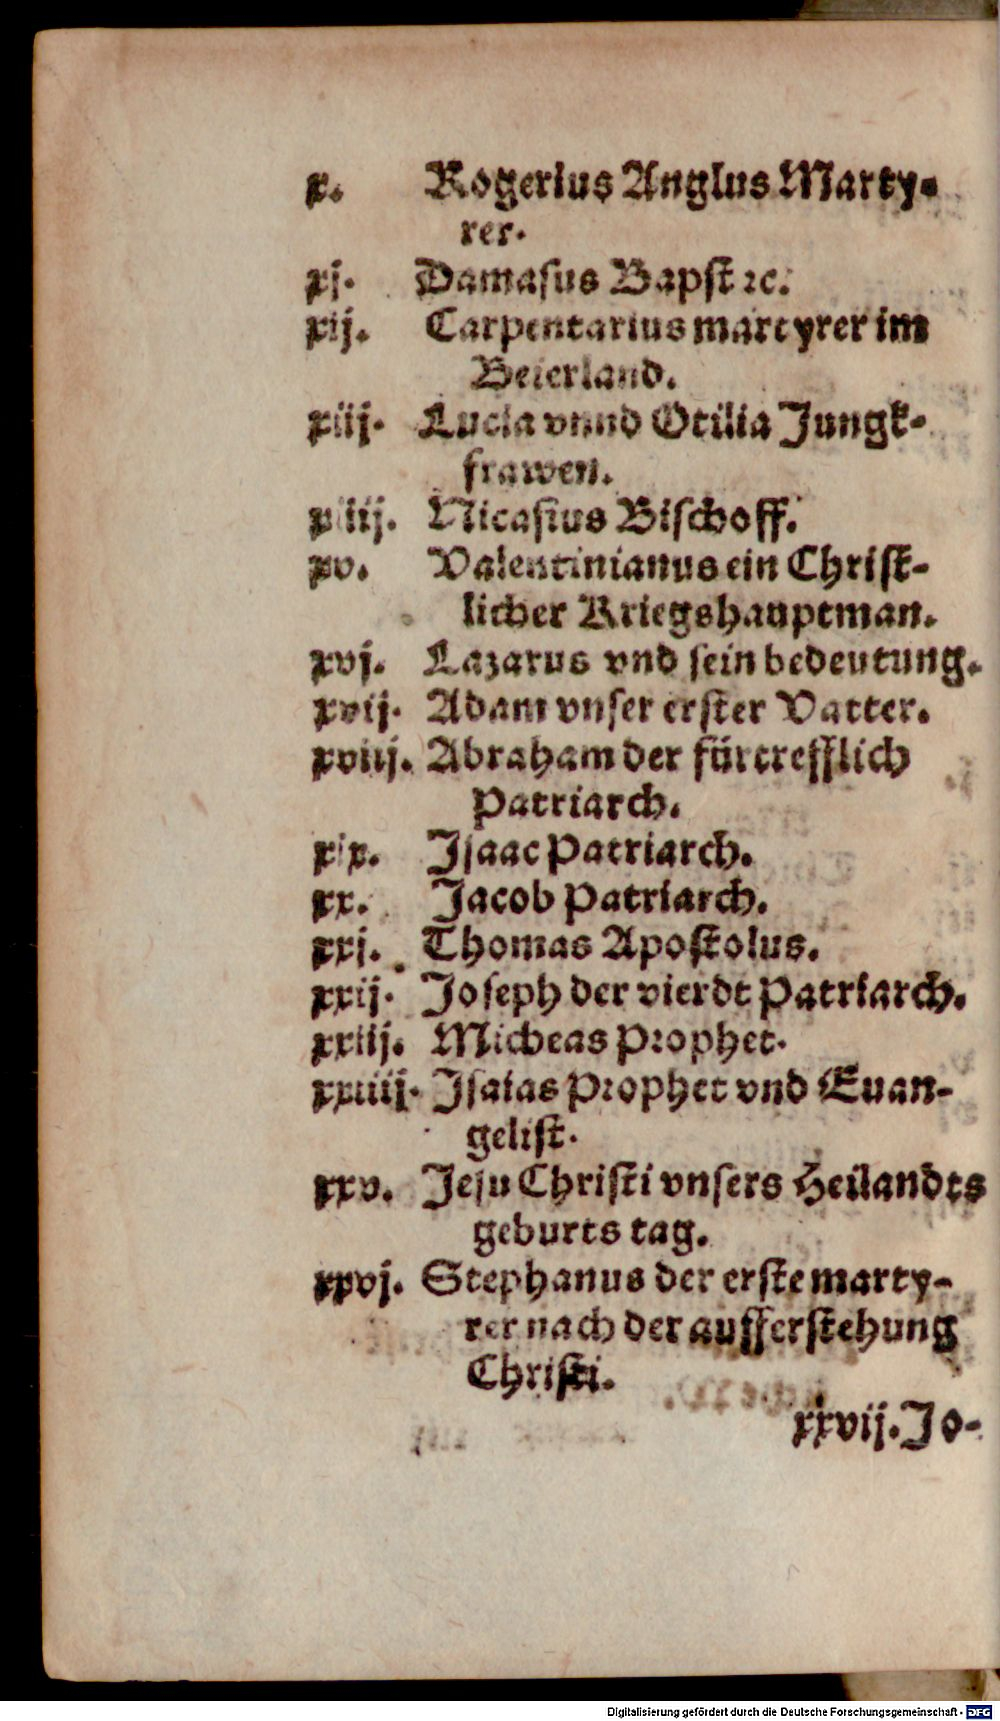 x. Rogerius Anglus Marty-
rer.
xj. Damasus Bapst ꝛc.
xij. Carpentarius martyrer im
Beierland.
xiij. Lucia vnnd Otilia Jungk-
frawen.
xiiij. Nicasius Bischoff.
xv. Valentinianus ein Christ-
licher Kriegshauptman.
xvj. Lazarus vnd sein bedeutung.
xvij. Adam vnser erster Vatter.
xviij. Abraham der fürtrefflich
Patriarch.
xix. Isaac Patriarch.
xx. Jacob Patriarch.
xxj. Thomas Apostolus.
xxij. Joseph der vierdt Patriarch.
xxiij. Micheas Prophet.
xxiiij. Isaias Prophet vnd Euan-
gelist.
xxv. Jesu Christi vnsers Heilandts
geburts tag.
xxvj. Stephanus der erste marty-
rer nach der aufferstehung
Christi.
xxvij. Jo-
Digitalisierung gefördert durch die Deutsche Forschungsgemeinschaft - DFG